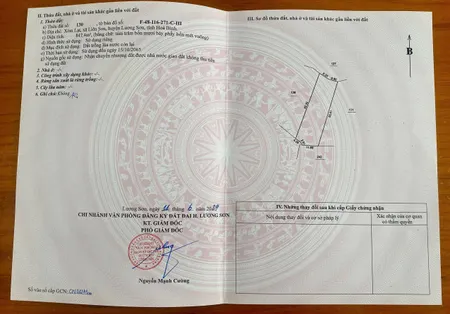 II. Thửa đất, nhà ở và tài sản khác gắn liền với đất
1. Thửa đất:
a) Thửa đất số: 130 tờ bản đồ số: F-48-116-271-C-III
b) Địa chỉ: Xóm Lai, xã Liên Sơn, huyện Lương Sơn, tỉnh Hoà Bình.
c) Diện tích: m², (bằng chữ:
d) Hình thức sử dụng: Sử dụng riêng
đ) Mục đích sử dụng: Đất trồng
e) Thời hạn sử dụng: Sử dụng đến ngày
g) Nguồn gốc sử dụng: Nhận chuyển nhượng đất được nhà nước giao đất không thu tiền
sử dụng đất
2. Nhà ở: -/-
3. Công trình xây dựng khác: -/-
4. Rừng sản xuất là rừng trồng: -/-
5. Cây lâu năm: -/-
6. Ghi chú: Không
Lương Sơn, ngày tháng 6 năm
CHI NHÁNH VĂN PHÒNG ĐĂNG KÝ ĐẤT ĐAI H. LƯƠNG SƠN
KT. GIÁM ĐỐC
PHÓ GIÁM ĐỐC
Nguyễn Mạnh Cường
Số vào sổ cấp GCN:
III. Sơ đồ thửa đất, nhà ở và tài sản khác gắn liền với đất
B
IV. Những thay đổi sau khi cấp Giấy chứng nhận
Nội dung thay đổi và cơ sở pháp lý
Xác nhận của cơ quan
có thẩm quyền